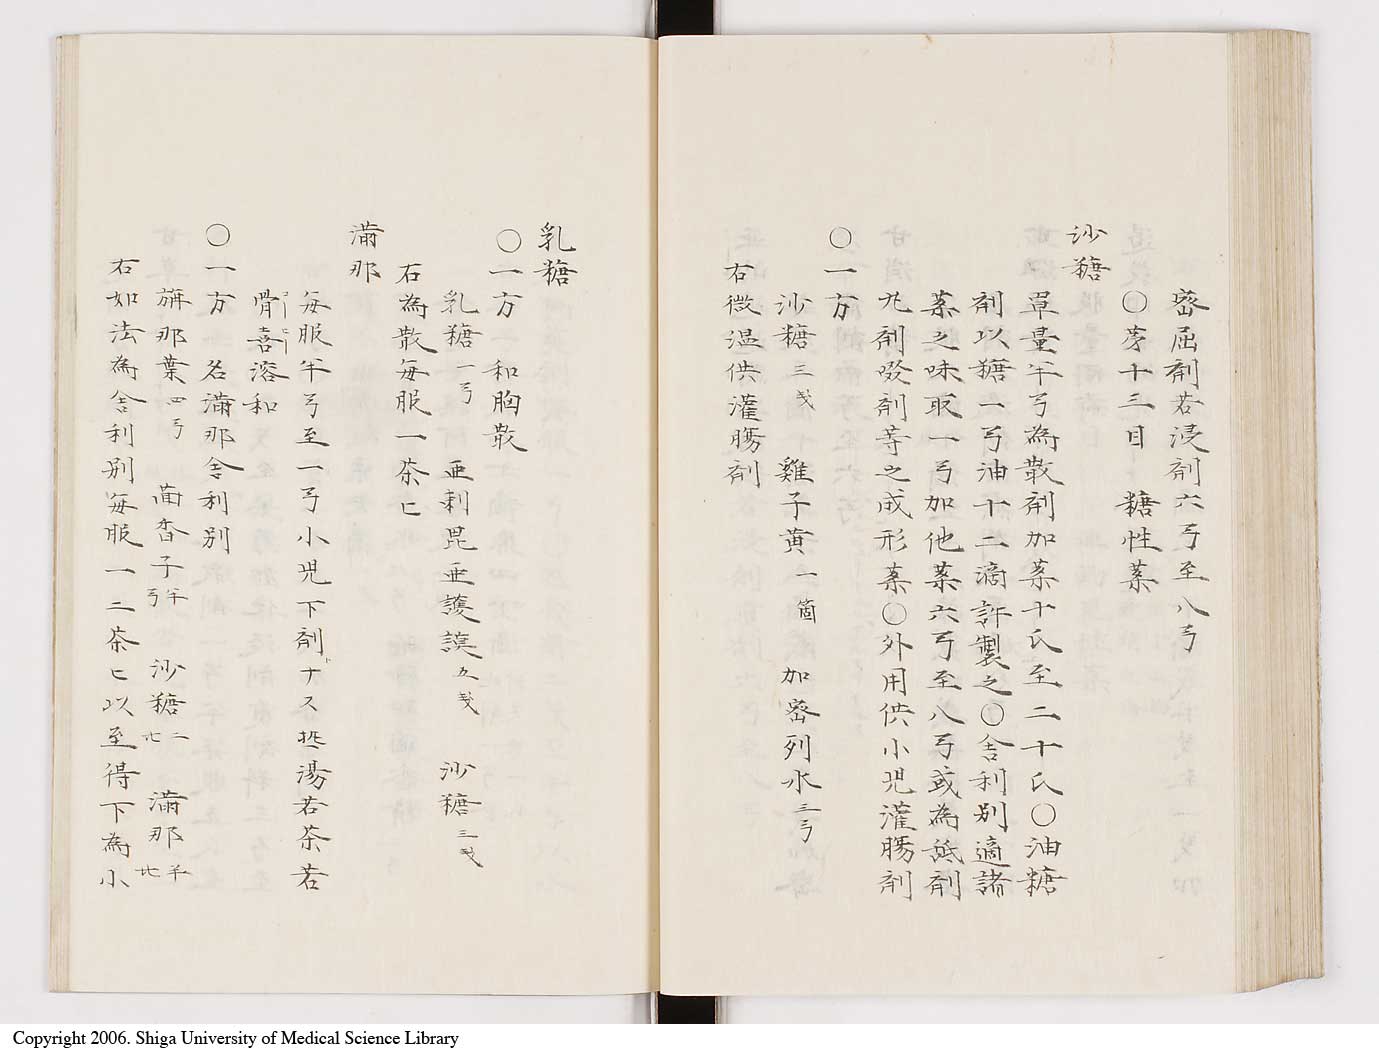 密屈剤若浸剤六弓至八弓
〇茅十三目　糖性薬
沙糖
単量半弓為散剤加薬十氏至二十氏〇油糖
剤以糖一弓油十二滴許製之〇舎利別適諸
薬之味取一弓加他薬六弓至八弓或為舐剤
丸剤啖剤等之成形薬〇外用供小児灌腸剤
〇一方
沙糖三戋　雞子黄一箇　加密列水三弓
右微温供灌腸剤
乳糖
〇一方　和胸散
乳糖一弓　亜剌毘亜護謨五戋　沙糖三戋
右為散毎服一茶匕
満那
毎服半弓至一弓小児下剤ナス熱湯若茶若
骨喜溶和
〇一方　名満那舎利別
旃那葉四弓　茴香子半弓　沙糖二比　満那半比
右如法為舎利別毎服一二茶匕以至得下為小
Copyright 2006. Shiga University of Medical Science Library